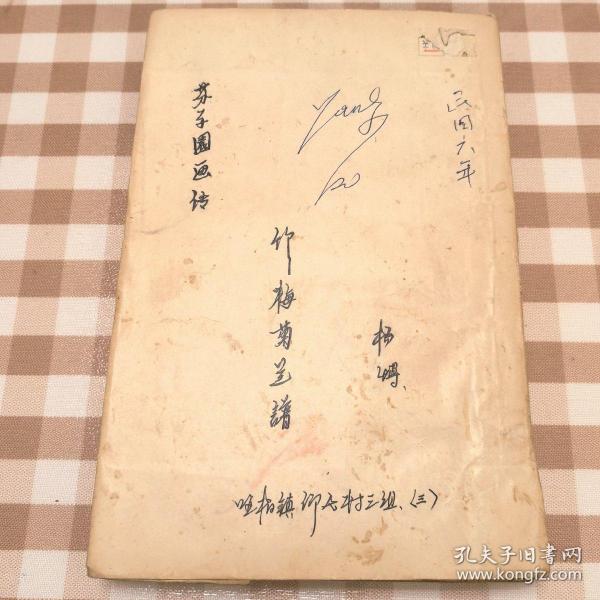 民国六年
Yang
芥子园画传
竹梅菊兰譜
杨博
柏镇
村三组、(三)
孔夫子旧书网
www.kongfz.com